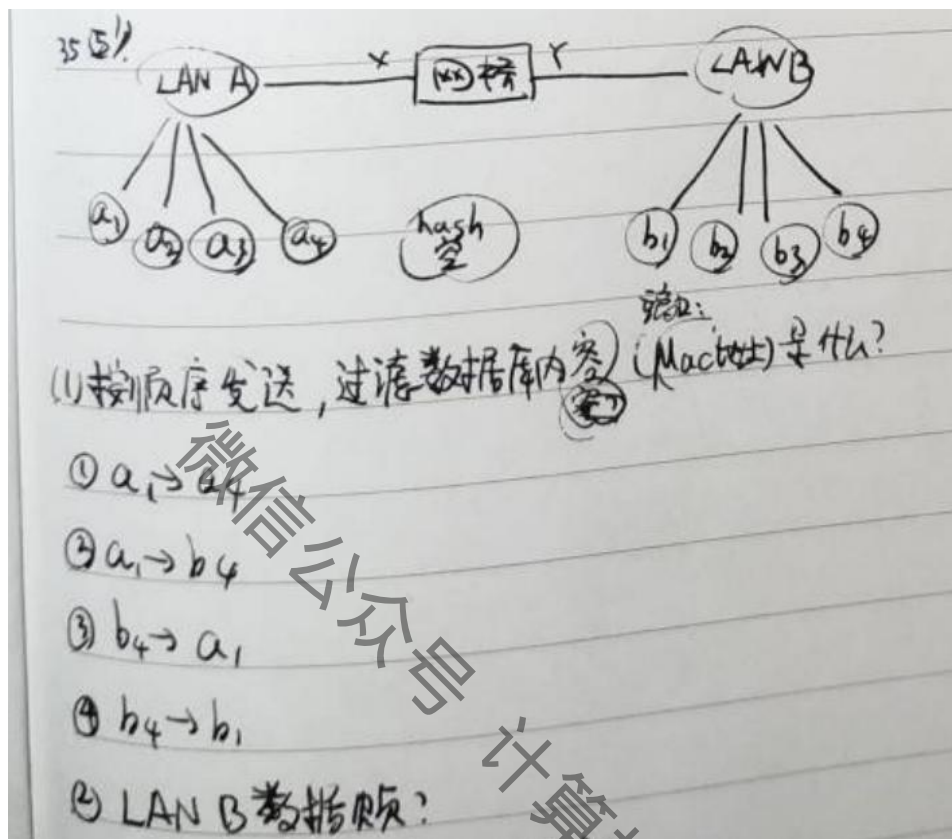 35(5')
LAN A X 网桥 Y LAN B
a1 a2 a3 a4 hash空 b1 b2 b3 b4
端口:
(1)按顺序发送,过滤数据库内容(Mac地址)是什么?
① a1→a4
② a1→b4
③ b4→a1
④ b4→b1
② LAN B 数据帧?
微信公众号 计算